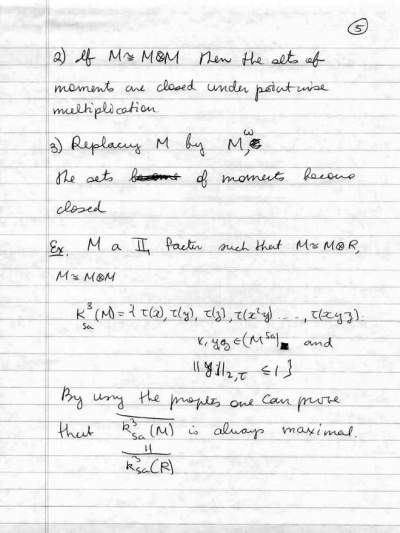 5
2) If M ≅ M⊗M then the sets of
moments are closed under pointwise
multiplication.
3) Replacing M by M^ω,
the sets of moments become
closed
Ex. M a II₁ factor such that M≅M⊗R,
M≅M⊗M
K³_sa(M) = { τ(x), τ(y), τ(z), τ(x²y) ..., τ(xyz).
x, y, z ∈ (M^sa) and
‖y‖_{2,τ} ≤ 1 }
By using the one can prove
that \overline{k³_sa(M)} is always maximal.
||
\overline{k³_sa(R)}